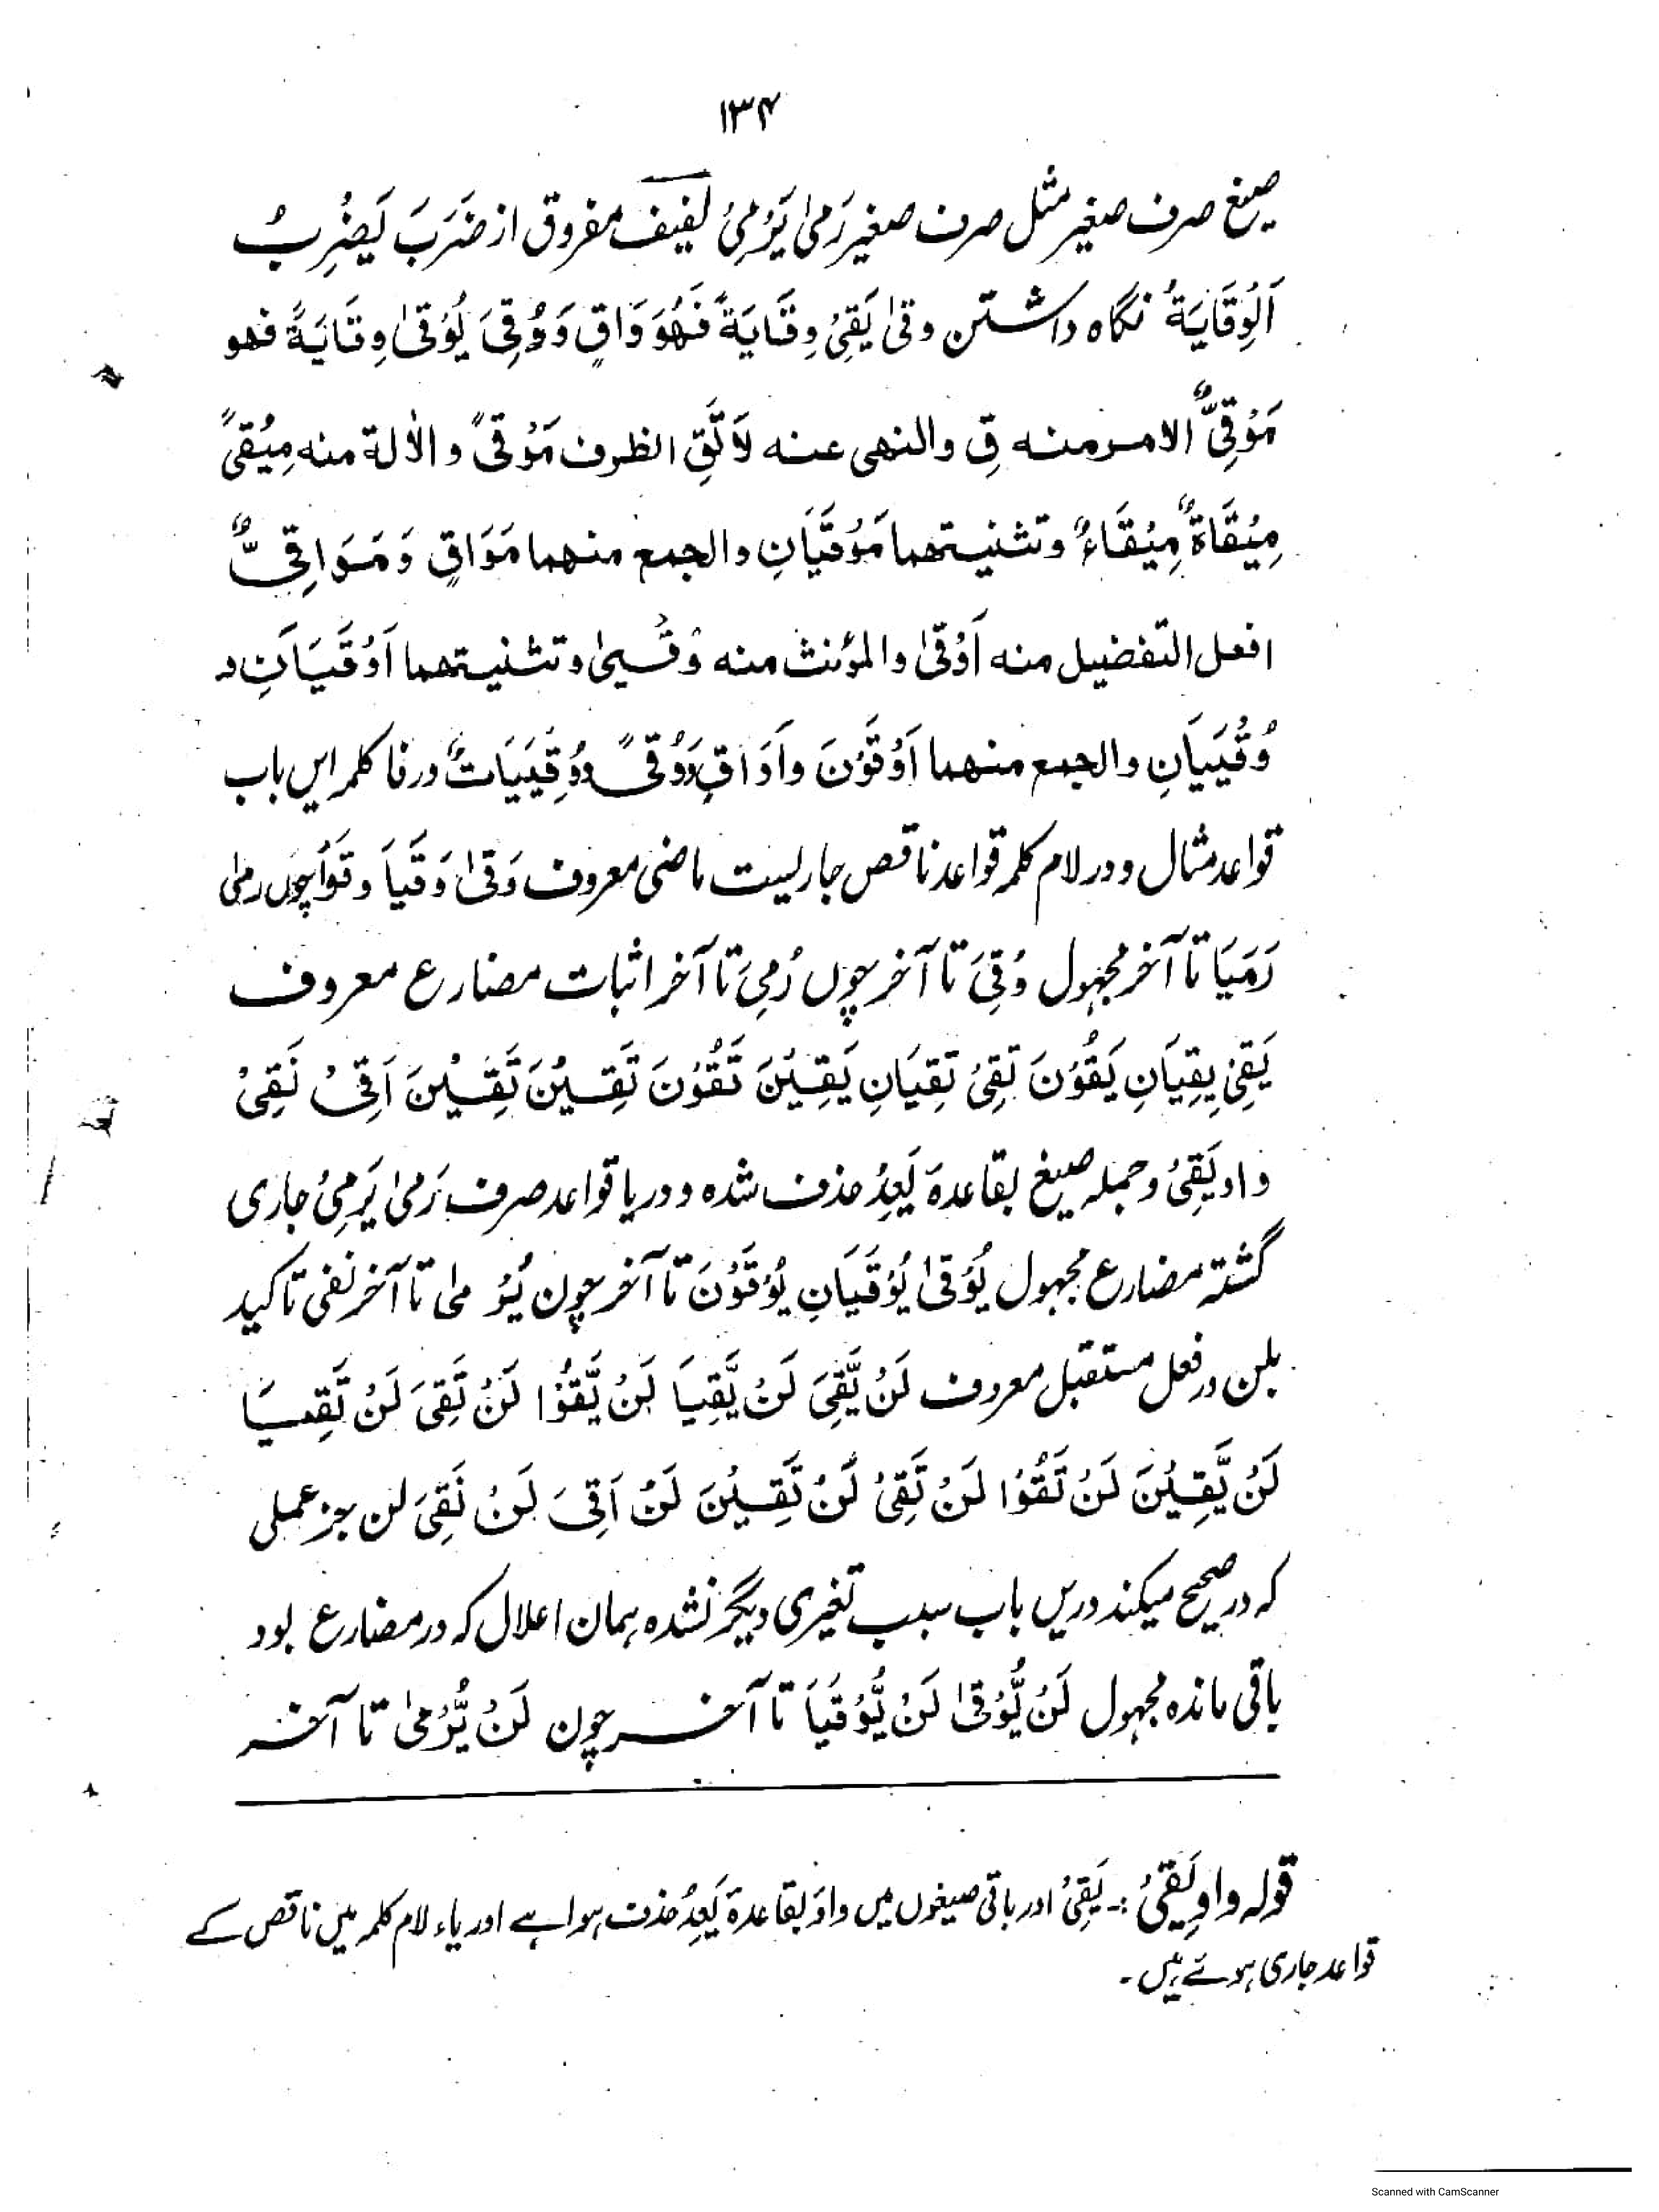 ۱۳۴
صیغ صرف صغیر مثل صرف صغیر رَمیٰ یَرْمِیْ لفیف مفروق از ضَرَبَ یَضْرِبُ
اَلْوِقَایَةُ نگاہ داشتن وقیٰ یَقِیْ وِقَایَةً فَهُوَ وَاقٍ وَوُقِیَ یُوْقیٰ وِقَایَةً فهو
مَوْقِیٌّ الامر منه قِ والنهی عنه لَاتَقِ الظرف مَوْقًی والاٰلة منه مِیْقًی
مِیْقَاةٌ مِیْقَاءٌ وتثنیتهما مَوْقَیَانِ والجمع منهما مَوَاقٍ وَمَوَاقِیُّ
افعل التفضیل منه اَوْقیٰ والمؤنث منه وُقْییٰ وتثنیتهما اَوْقَیَانِ و
وُقْیَیَانِ والجمع منهما اَوْقَوْنَ واَوَاقٍ وَوُقًی وَوُقْیَیَاتٌ ورفا کلمہ ایں باب
قواعد مثال و در لام کلمہ قواعد ناقص جاریست ماضی معروف وَقیٰ وَقَیَا وَقَوْا چوں رمیٰ
رَمَیَا تا آخر مجہول وُقِیَ تا آخر چوں رُمِیَ تا آخر اثبات مضارع معروف
یَقِیْ یَقِیَانِ یَقُوْنَ تَقِیْ تَقِیَانِ یَقِیْنَ تَقُوْنَ تَقِیْنَ تَقِیْنَ اَقِیْ نَقِیْ
واو یَقِیْ وجملہ صیغ بقاعدۃ یَعِدُ حذف شدہ و در یا قواعد صرف رَمیٰ یَرْمِیْ جاری
گشتہ مضارع مجہول یُوْقیٰ یُوْقَیَانِ یُوْقَوْنَ تا آخر چون یُرْمیٰ تا آخر نفی تاکید
بلن در فعل مستقبل معروف لَنْ یَّقِیَ لَنْ یَّقِیَا لَنْ یَّقُوْا لَنْ تَقِیَ لَنْ تَقِیَا
لَنْ یَّقِیْنَ لَنْ تَقُوْا لَنْ تَقِیْ لَنْ تَقِیْنَ لَنْ اَقِیَ لَنْ نَقِیَ لن جز عملی
کہ در صحیح میکند دریں باب سبب تغیری دیگر نشدہ ہمان اعلال کہ در مضارع بود
باقی ماندہ مجہول لَنْ یُّوْقیٰ لَنْ یُّوْقَیَا تا آخر چون لَنْ یُّرْمیٰ تا آخر
قولہ واو یَقِیْ :۔ یَقِیْ اور باقی صیغوں میں واؤ بقاعدۃ یَعِدُ حذف ہوا ہے اور یاء لام کلمہ میں ناقص کے
قواعد جاری ہوئے ہیں۔
Scanned with CamScanner